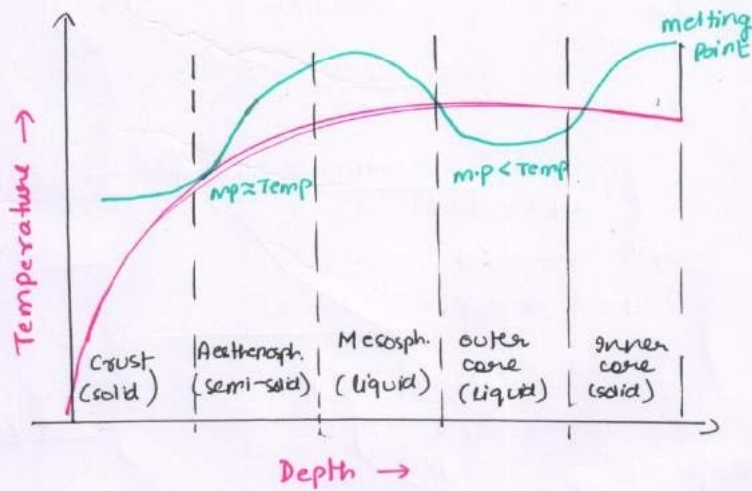 melting
point
Temperature →
mp ≈ Temp
m.p < Temp
Crust
(solid)
Aesthenosph.
(semi-solid)
Mesosph.
(liquid)
outer
core
(liquid)
Inner
core
(solid)
Depth →